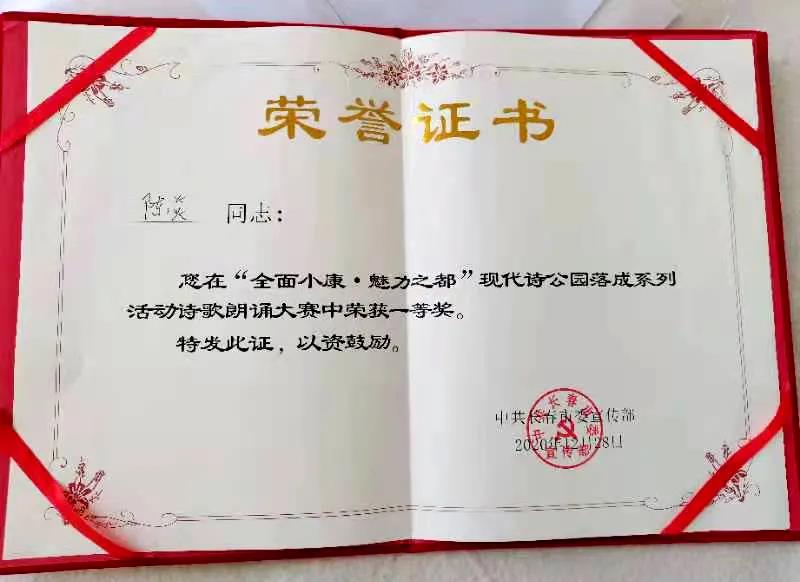 荣誉证书
陈炎 同志：
您在“全面小康·魅力之都”现代诗公园落成系列
活动诗歌朗诵大赛中荣获一等奖。
特发此证，以资鼓励。
中共长春市委宣传部
2020年12月28日
中共长春市委
宣传部